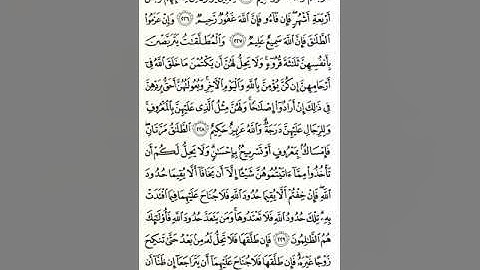 أَرْبَعَةِ أَشْهُرٍ فَإِن فَآءُو فَإِنَّ ٱللَّهَ غَفُورٌ رَّحِيمٌ ٢٢٦ وَإِنْ عَزَمُوا۟
ٱلطَّلَٰقَ فَإِنَّ ٱللَّهَ سَمِيعٌ عَلِيمٌ ٢٢٧ وَٱلْمُطَلَّقَٰتُ يَتَرَبَّصْنَ
بِأَنفُسِهِنَّ ثَلَٰثَةَ قُرُوٓءٍ وَلَا يَحِلُّ لَهُنَّ أَن يَكْتُمْنَ مَا خَلَقَ ٱللَّهُ فِىٓ
أَرْحَامِهِنَّ إِن كُنَّ يُؤْمِنَّ بِٱللَّهِ وَٱلْيَوْمِ ٱلْءَاخِرِ وَبُعُولَتُهُنَّ أَحَقُّ بِرَدِّهِنَّ
فِى ذَٰلِكَ إِنْ أَرَادُوٓا۟ إِصْلَٰحًا وَلَهُنَّ مِثْلُ ٱلَّذِى عَلَيْهِنَّ بِٱلْمَعْرُوفِ
وَلِلرِّجَالِ عَلَيْهِنَّ دَرَجَةٌ وَٱللَّهُ عَزِيزٌ حَكِيمٌ ٢٢٨ ٱلطَّلَٰقُ مَرَّتَانِ
فَإِمْسَاكٌۢ بِمَعْرُوفٍ أَوْ تَسْرِيحٌۢ بِإِحْسَٰنٍ وَلَا يَحِلُّ لَكُمْ أَن
تَأْخُذُوا۟ مِمَّآ ءَاتَيْتُمُوهُنَّ شَيْـًٔا إِلَّآ أَن يَخَافَآ أَلَّا يُقِيمَا حُدُودَ
ٱللَّهِ فَإِنْ خِفْتُمْ أَلَّا يُقِيمَا حُدُودَ ٱللَّهِ فَلَا جُنَاحَ عَلَيْهِمَا فِيمَا ٱفْتَدَتْ
بِهِۦ تِلْكَ حُدُودُ ٱللَّهِ فَلَا تَعْتَدُوهَا وَمَن يَتَعَدَّ حُدُودَ ٱللَّهِ فَأُو۟لَٰٓئِكَ
هُمُ ٱلظَّٰلِمُونَ ٢٢٩ فَإِن طَلَّقَهَا فَلَا تَحِلُّ لَهُۥ مِنۢ بَعْدُ حَتَّىٰ تَنكِحَ
زَوْجًا غَيْرَهُۥ فَإِن طَلَّقَهَا فَلَا جُنَاحَ عَلَيْهِمَآ أَن يَتَرَاجَعَآ إِن ظَنَّآ أَن